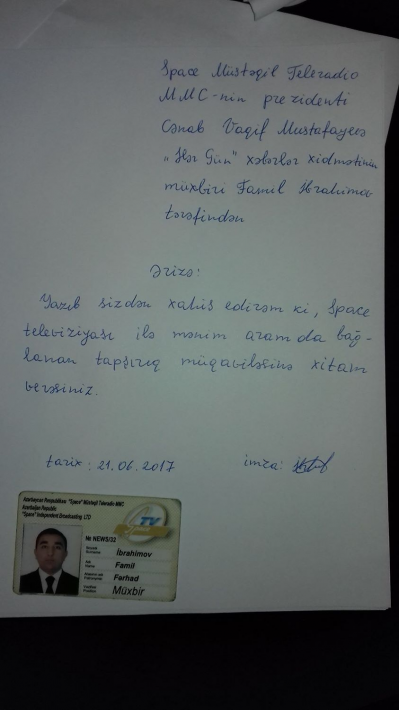 Space Müstəqil Teleradio
MMC-nin prezidenti
Cənab Vaqif Mustafayevə
„Hər Gün" xəbərlər xidmətinin
müxbiri Famil İbrahimov
tərəfindən
Ərizə:
Yazıb sizdən xahiş edirəm ki, Space
televiziyası ilə mənim aramda bağ-
lanan tapşırıq müqaviləsinə xitam
verəsiniz.
tarix: 21.06.2017 imza:
Azərbaycan Respublikası "Space" Müstəqil Teleradio MMC
Azerbaijan Republic
"Space" Independent Broadcasting LTD
TV
№ NEWS/32
Soyadı
Surname İbrahimov
Adı
Name Famil
Atasının adı
Patronymic Fərhad
Vəzifəsi
Position Müxbir